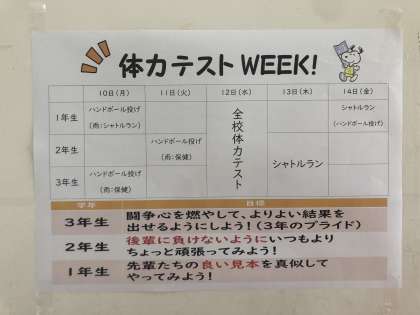 体力テスト WEEK!
10日(月) 11日(火) 12日(水) 13日(木) 14日(金)
1年生 ハンドボール投げ シャトルラン
(雨:シャトルラン) (ハンドボール投げ)
全校体力テスト
2年生 ハンドボール投げ
(雨:保健)
シャトルラン
3年生 ハンドボール投げ
(雨:保健)
学年 目標
3年生 闘争心を燃やして、よりよい結果を
出せるようにしよう!(3年のプライド)
2年生 後輩に負けないようにいつもより
ちょっと頑張ってみよう!
1年生 先輩たちの良い見本を真似して
やってみよう!